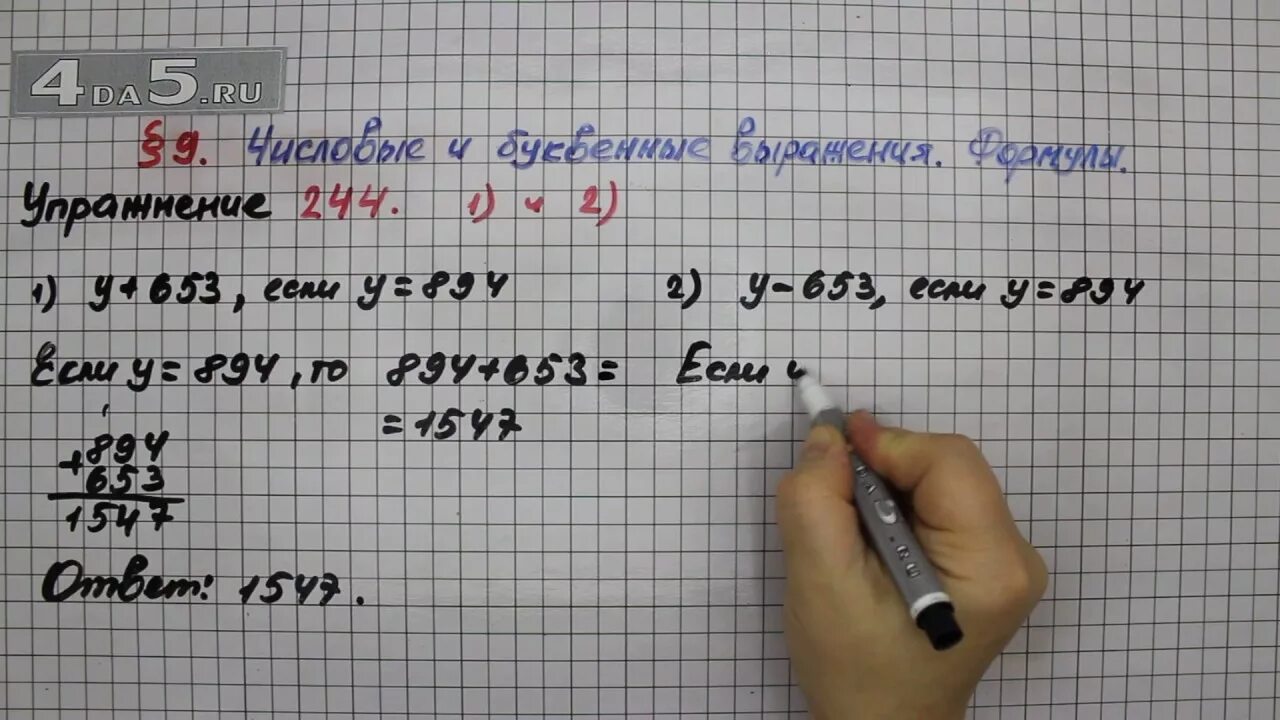 4DA5.RU
§ 9. Числовые и буквенные выражения. Формулы.
Упражнение 244. 1) и 2)
1) y + 653, если y = 894
Если y = 894, то 894 + 653 =
= 1547
894
+ 653
1547
Ответ: 1547.
2) y - 653, если y = 894
Если